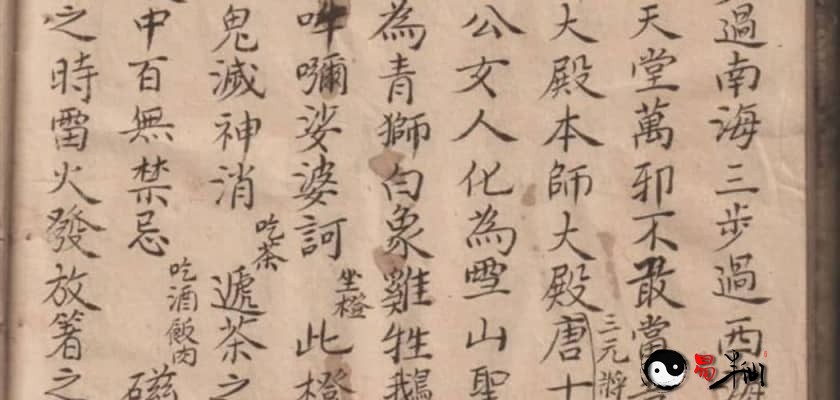 過南海三步過西海
天堂萬邪不敢當
三元將
大殿本師大殿唐
公女人化為雪山聖
為青獅白象雞牲鵝
吽嚩娑婆訶 坐橙 此橙
鬼滅神消 吃茶 遞茶之
中百無禁忌 吃酒飯肉 磁
之時雷火發放箸之
易半仙